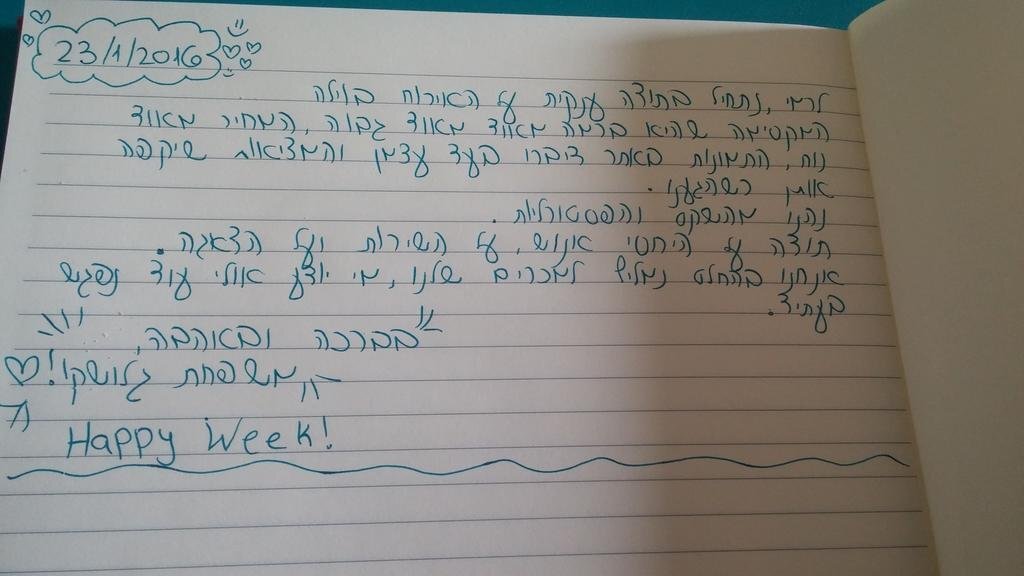 23/1/2016
לרמי, נתחיל בתודה ענקית על האירוח בוילה
המקסימה שהיא ברמה מאוד מאוד גבוה, המחיר מאוד
נוח, התמונות באתר דיברו בעד עצמן והמציאות שיקפה
אותן כשהגענו.
נהנו מהשקט והפסטורליות.
תודה על היחסי אנוש, על השירות ועל הדאגה.
אנחנו בהחלט נמליץ למכרים שלנו, מי יודע אולי עוד נפגש
בעתיד.
בברכה ובאהבה,
משפחת!
Happy Week!